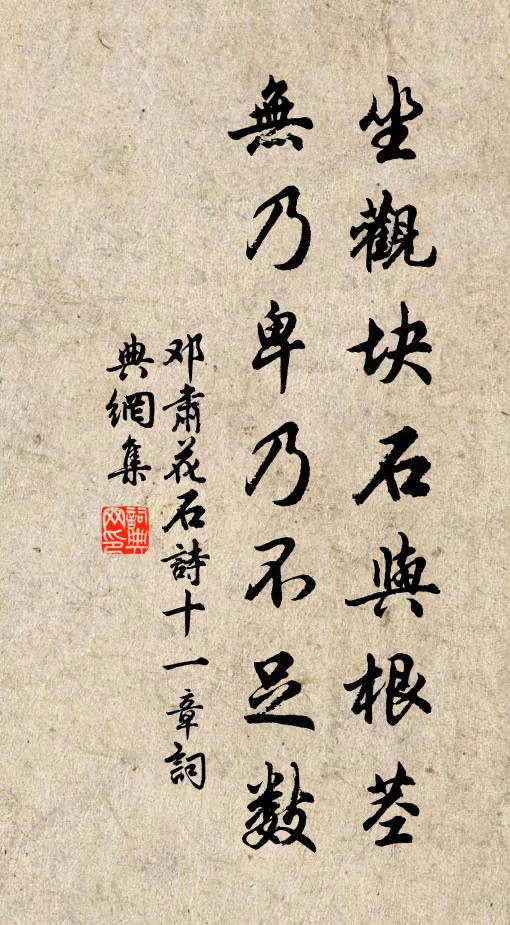 坐觀块石與根茎
無乃卑乃不足數
邓肅花石詩十一章詞
典網集
詞典网印